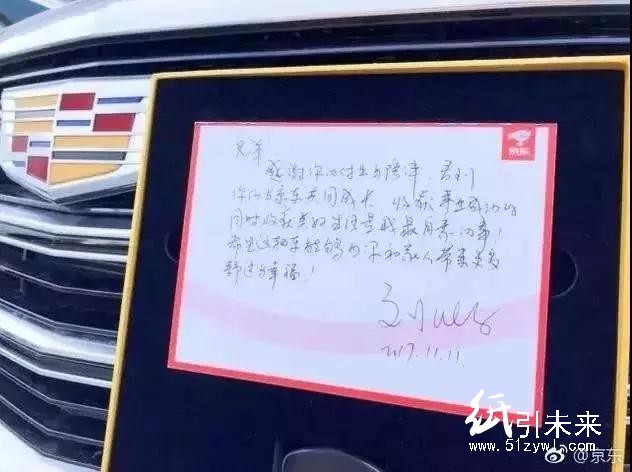 京东
兄弟
感谢你的付出与陪伴,看到
你们与京东共同成长,收获事业成功的
同时收获美好生活是我最自豪的事!
希望这辆车能够为你和家人带来更多
舒适与幸福!
2017.11.11.
纸引未来
www.51zywl.com
@京东